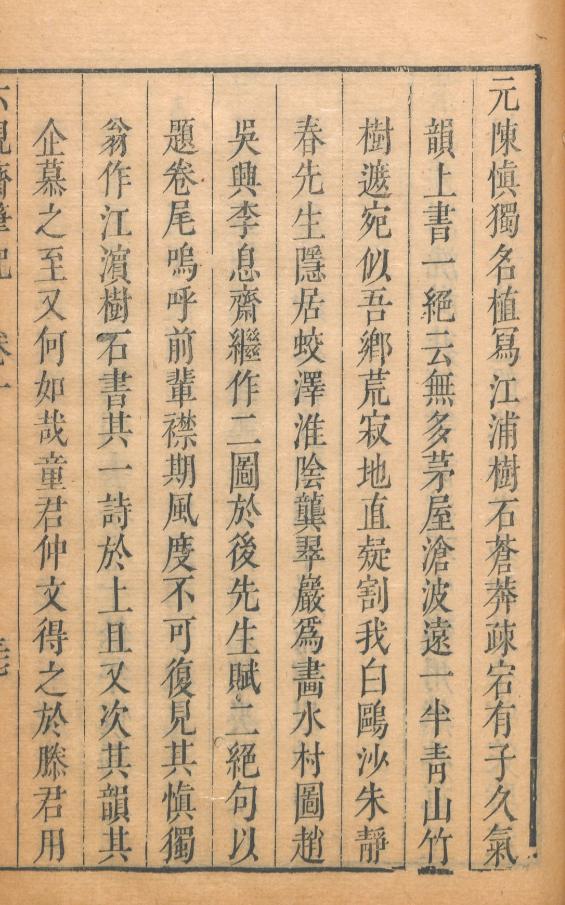 元陳慎獨名植寫江浦樹石蒼莽疎宕有子久氣
韻上書一絕云無多茅屋滄波遠一半青山竹
樹遮宛似吾鄉荒寂地直疑割我白鷗沙朱靜
春先生隱居蛟澤淮陰龔翠巖爲畵水村圖趙
吳興李息齋繼作二圖於後先生賦二絕句以
題卷尾嗚呼前輩襟期風度不可復見其愼獨
翁作江濵樹石書其一詩於上且又次其韻其
企慕之至又何如哉童君仲文得之於滕君用
六硯齋筆記 卷一